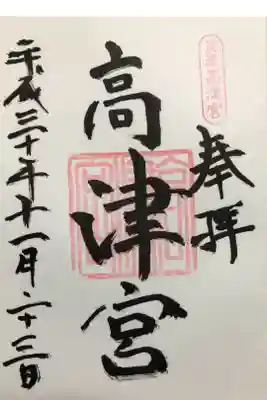 奉拝
高津宮
平成三十年十一月二十三日